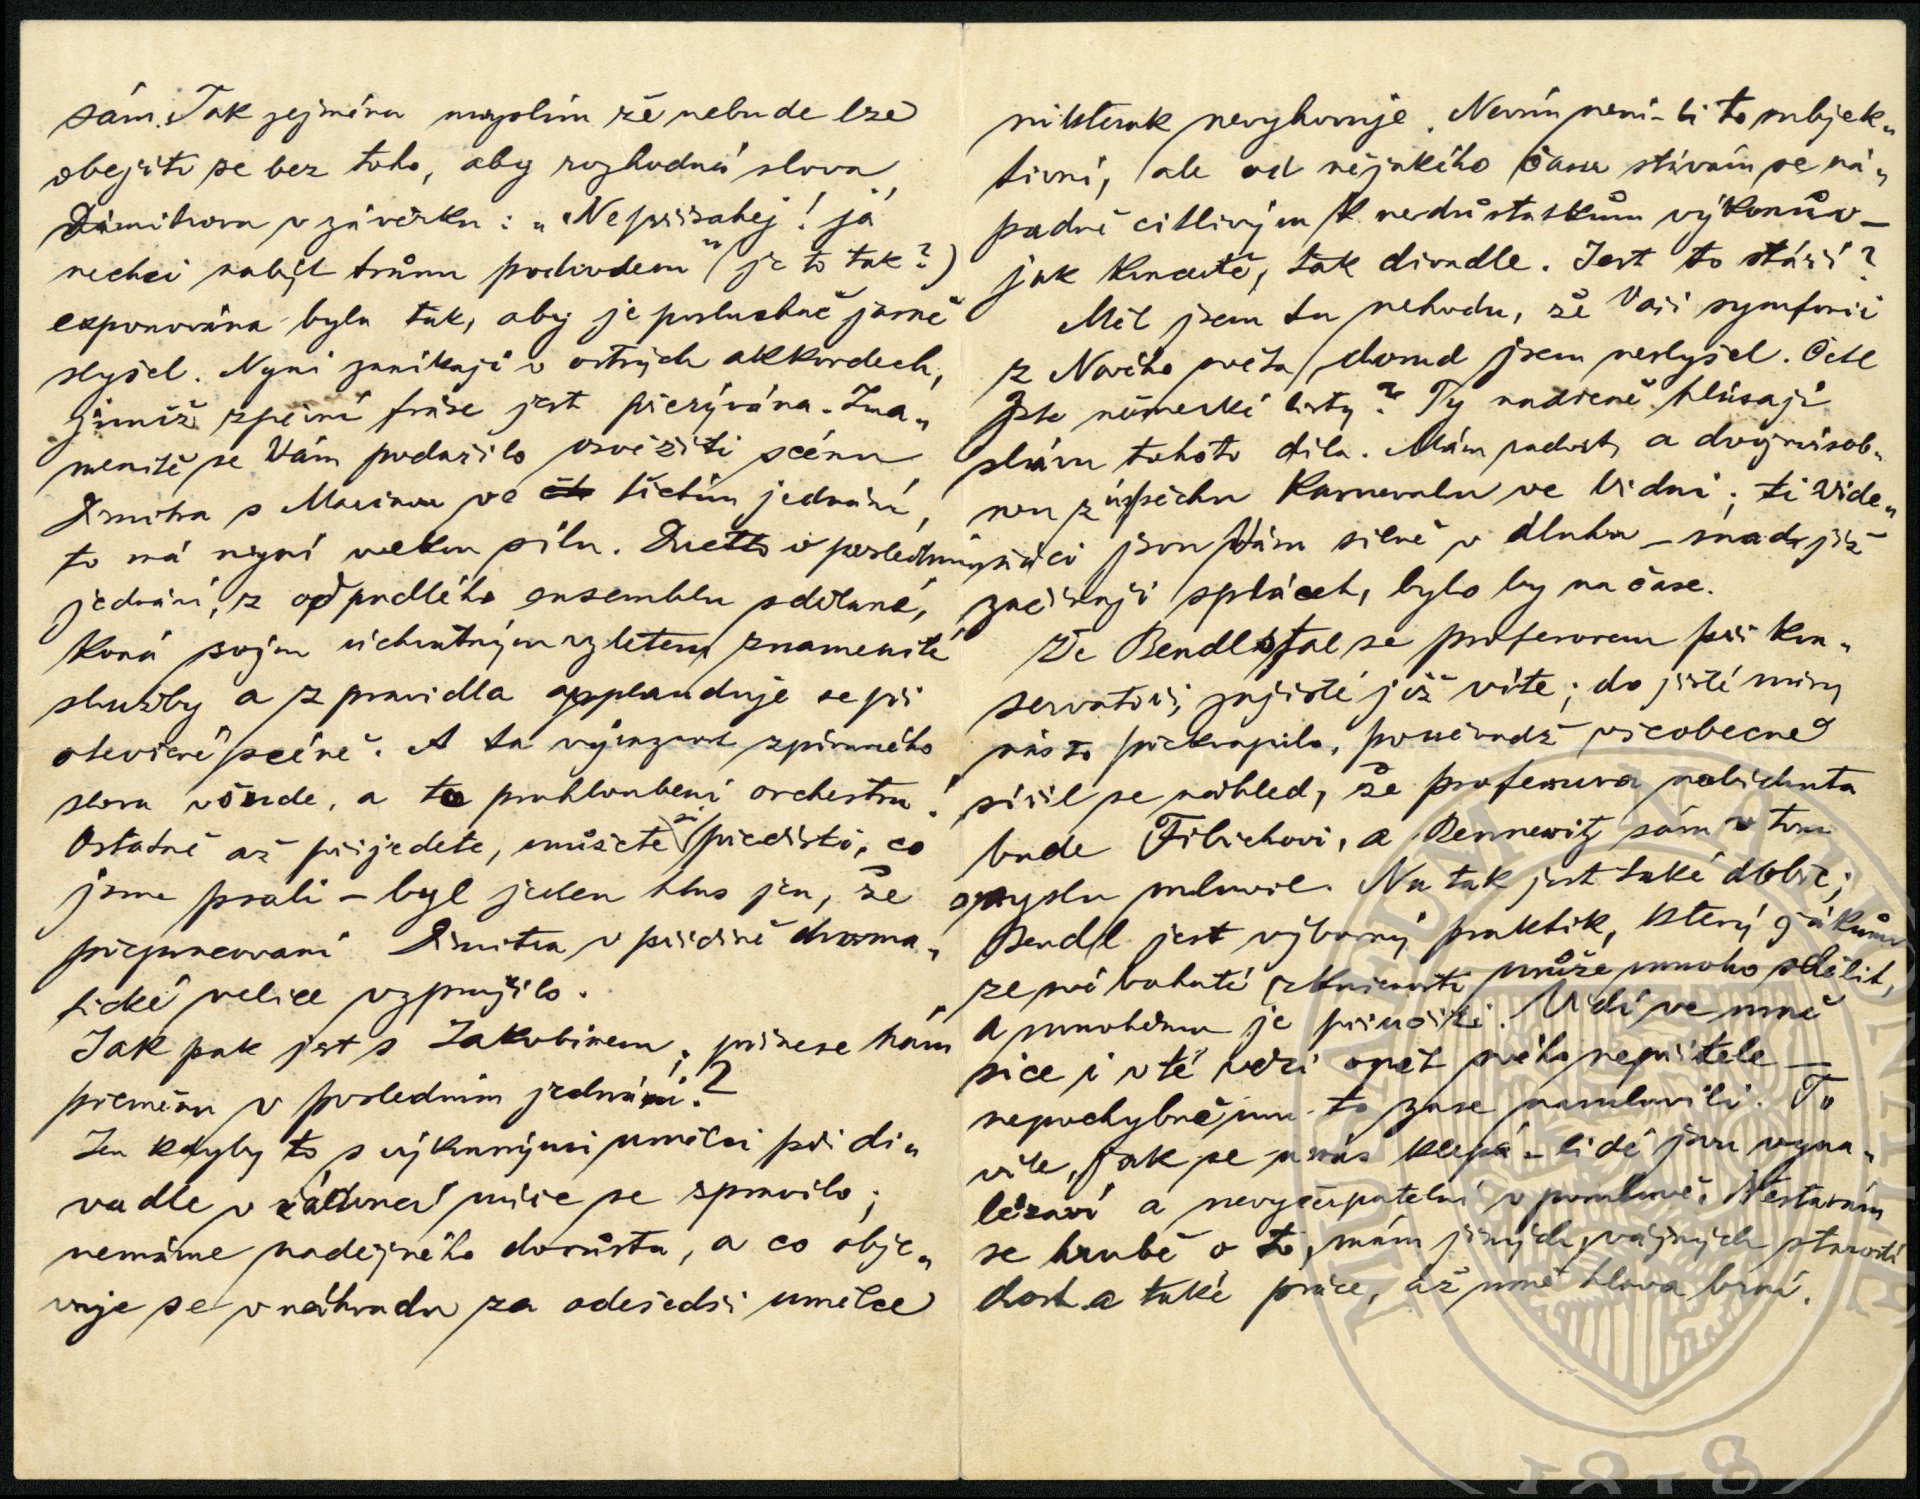 sám. Tak zejména myslím že nebude lze
obejíti se bez toho, aby rozhodná slova
Dimitrova v závěrku: „Nepřísahej! já
nechci nabýt trůnu podvodem“ (je to tak?)
exponována byla tak, aby je posluchač jasně
slyšel. Nyní zanikají v ostrých akkordech,
jimiž zpěvní fráse jest přerývána. Zna„
menitě se Vám podařilo osvěžiti scénu
Dimitra s Marinou ve třetím jednání,
to má nyní velkou sílu. Duetto v posledním
jednání, z odpadlého ensemblu sdělané,
koná svým úchvatným vzletem znamenité
služby a z pravidla applauduje se při
otevřené scéně. A ta výraznost zpívaného
slova všude, a to prohloubení orchestru!
Ostatně až přijedete, můžete si předčísti, co
jsme psali – byl jeden hlas jen, že
přepracování Dimitra v příčině drama„
tické velice vzpružilo.
Jak pak jest s Jakobinem; přinese nám
přeměnu v posledním jednání?
Jen kdyby to s výkonnými umělci při di„
vadle v řádné míře se spravilo;
nemáme nadějného dorostu, a co obje„
vuje se v náhradu za odešedší umělce
nikterak nevyhovuje. Nevím není-li to subjek„
tivní, ale od nějakého času stávám se ná„
padně citlivým k nedostatkům výkonův –
jak koncertě, tak divadle. Jest to stáří?
Měl jsem tu nehodu, že Vaši symfonii
z Nového světa dosud jsem neslyšel. Četl
jste německé listy? Ty nadšeně hlásají
slávu tohoto díla. Mám radost, a dvojnásob„
nou z úspěchu Karnevalu ve Vídni; ti Víde„
ňáci jsou Vám silně v dluhu – snad již
začínají splácet, bylo by na čase.
Že Bendl stal se professorem při kon„
servatoři, zajisté již víte; do jisté míry
nás to překvapilo, poněvadž všeobecně
šířil se náhled, že professura nabídnuta
bude Fibichovi, a Bennewitz sám v tom
smyslu mluvil. Na tak jest také dobře;
Bendl jest výborný praktik, který žákům
ze své bohaté zkušenosti může mnoho sdělit,
a mnohému je přiučiti. Vidí ve mně
sice i v té věci opět svého nepřítele –
nepochybně mu to zase namluvili. To
víte, jak se u nás klepá – lidé jsou vyna„
lézaví a nevyčerpatelní v pomluvě. Nestarám
se hrubě o to, mám jiných, vážných starostí
dost a také práce, až mně hlava brní.
MUSAEUM NATIONALE
1818